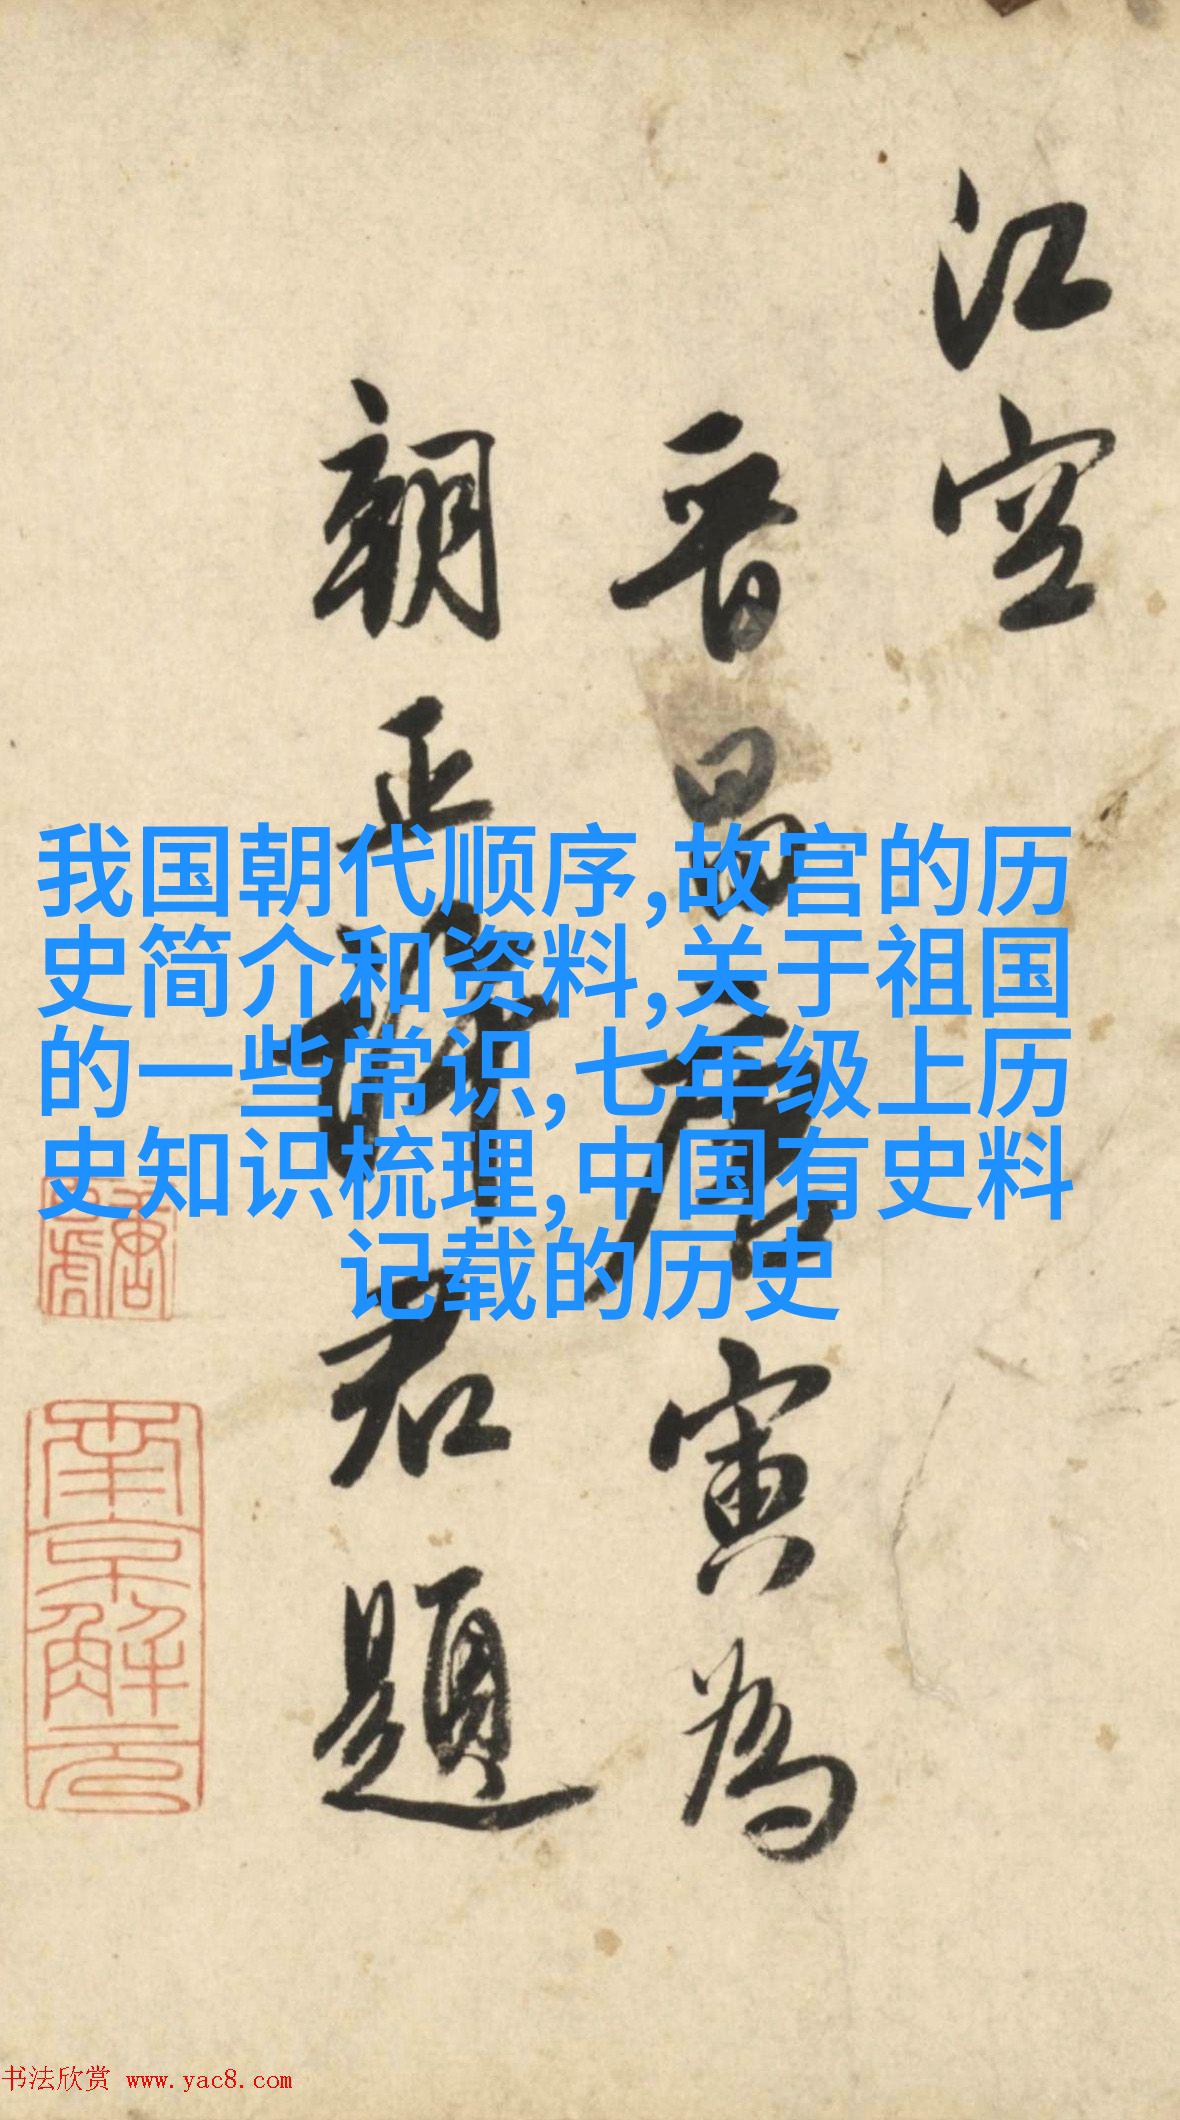 江空
晋昌唐寅为
朝正詞君题
我国朝代顺序,故宫的历
史简介和资料,关于祖国
的一些常识,七年级上历
史知识梳理,中国有史料
记载的历史
南京解元
书法欣赏 www.yac8.com